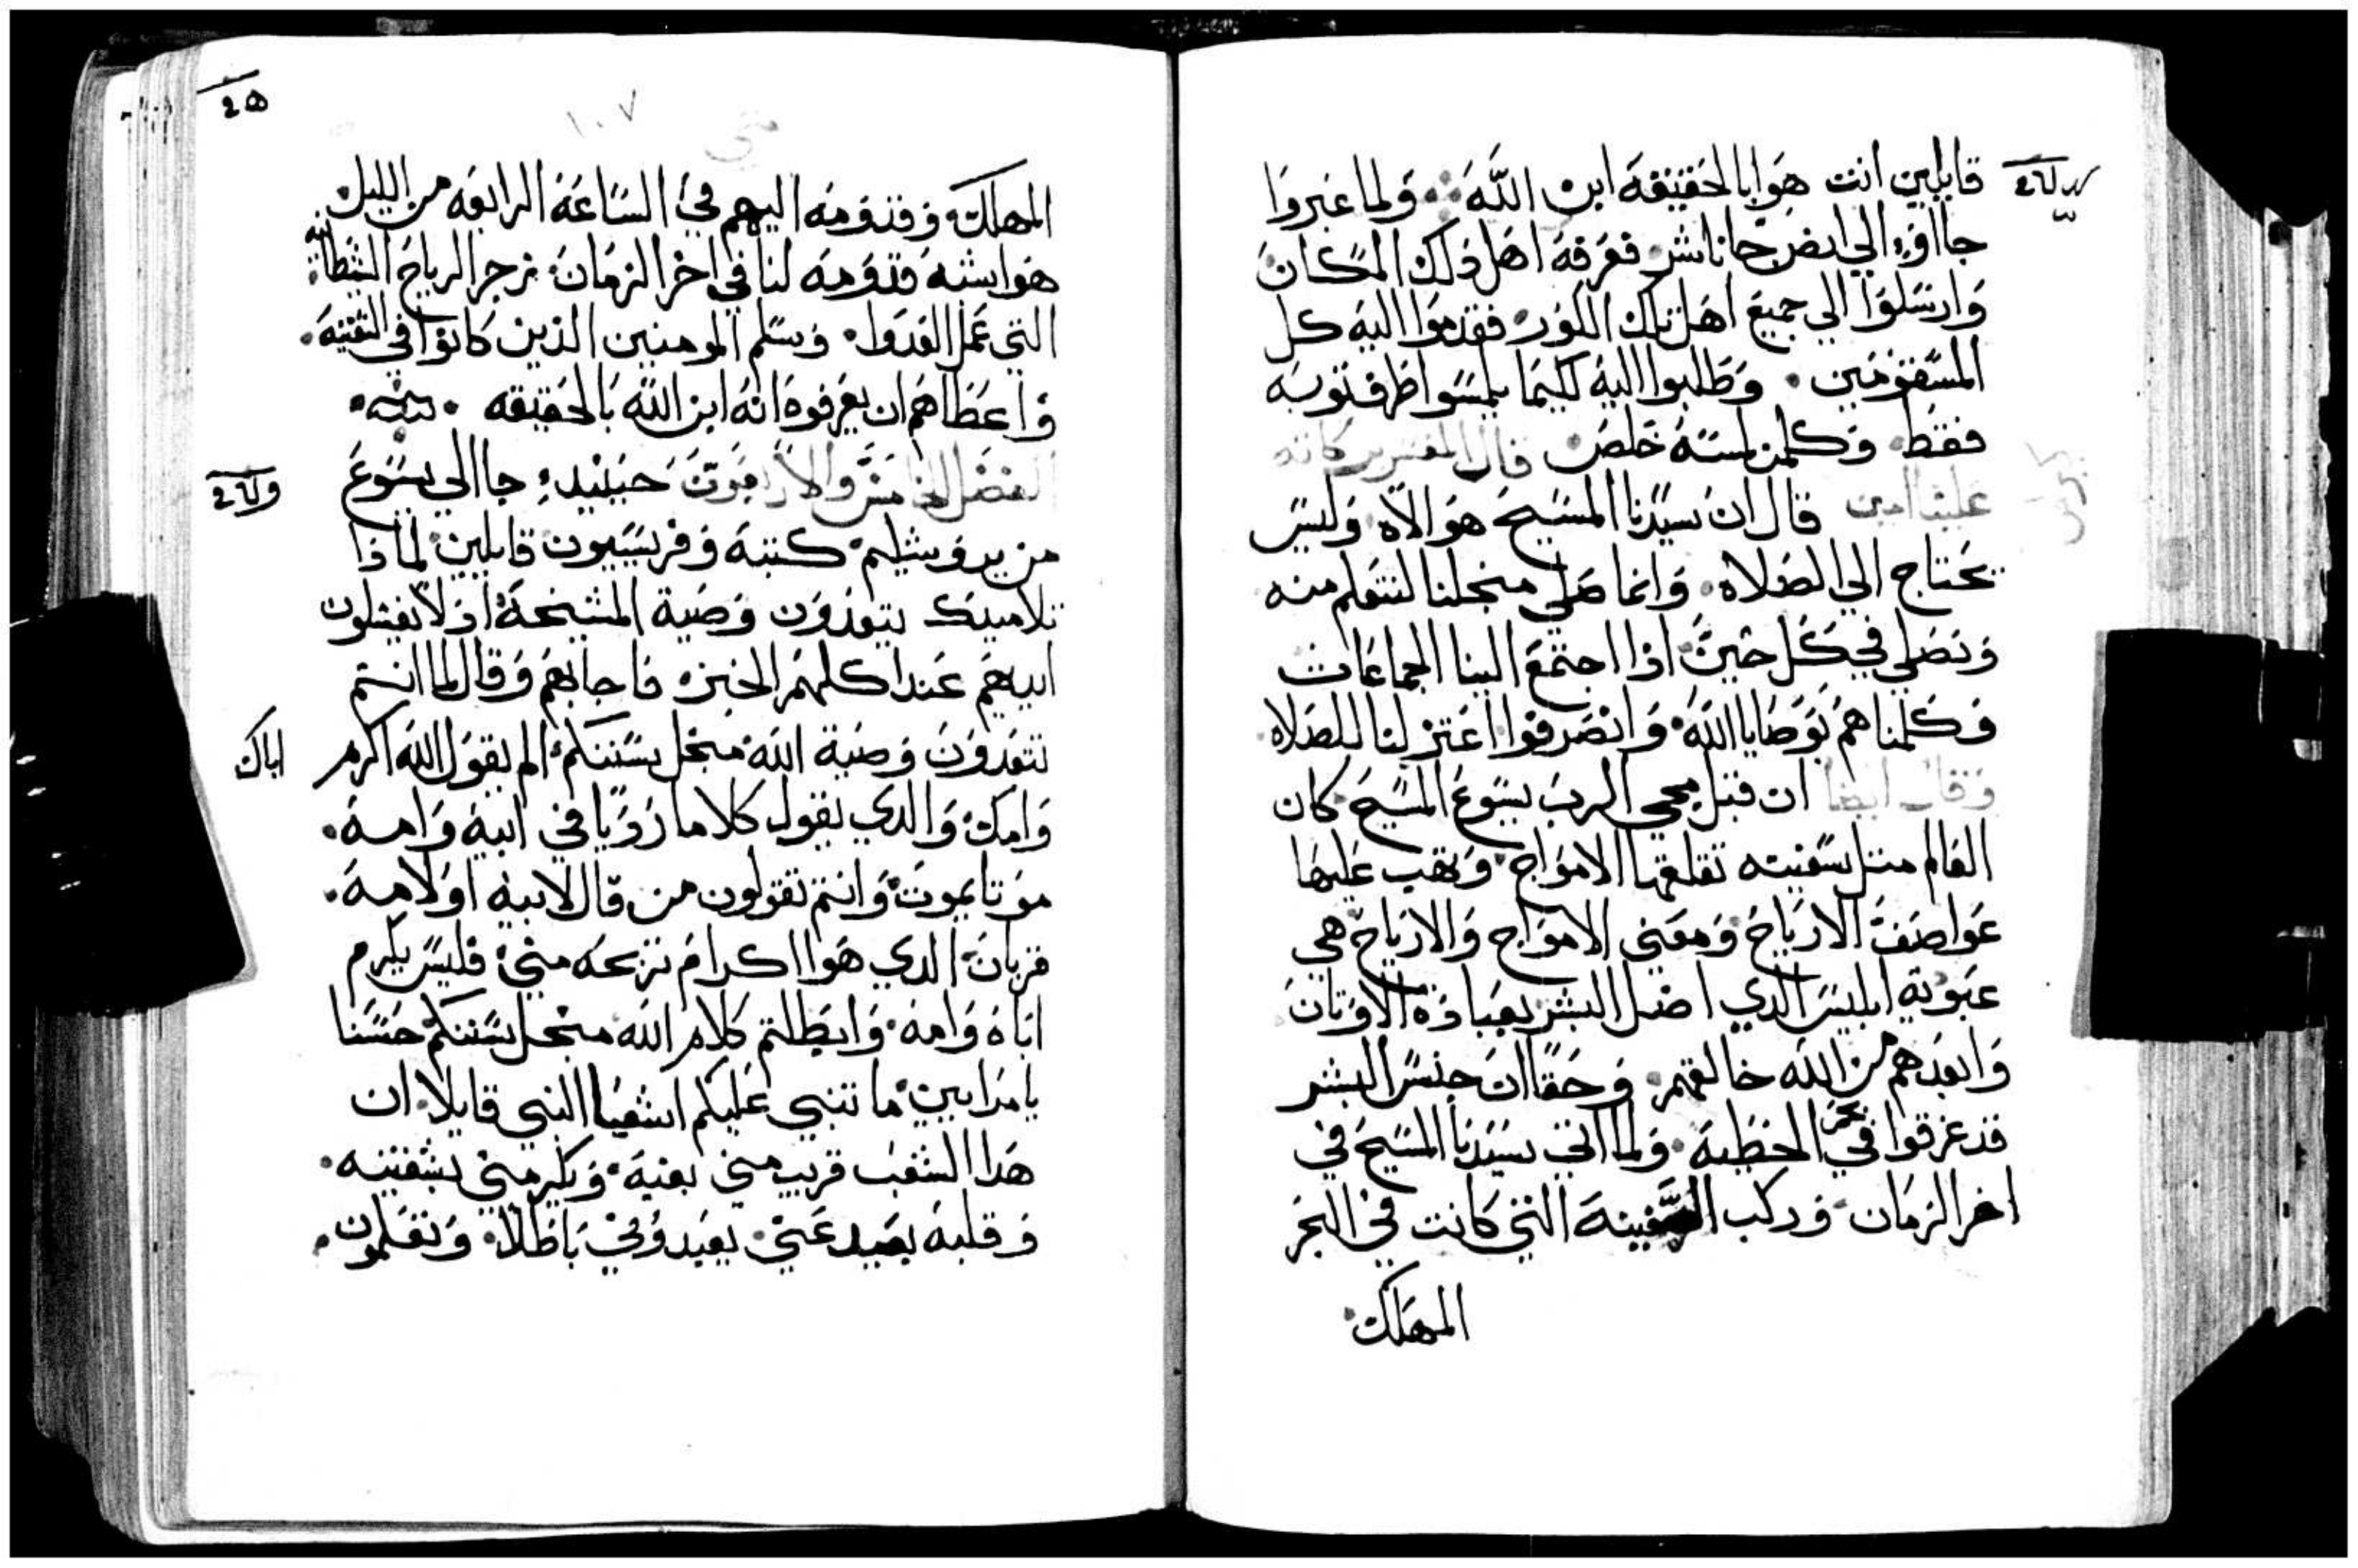 قايلين انت هوا بالحقيقه ابن الله ولما عبروا
جااوء الي ارض جاناشر فعرفه اهل ذلك المكان
وارسلوا الي جميع اهل تلك الكور فقدموا اليه كل
المسقومين وطلبوا اليه لكيما يلمسوا طرف توبه
فقط وكلمن لمسه خلص قال المفسر بركاته
علينا امين قال ان سيدنا المسيح هو الاه وليس
يحتاج الي الصلاه وانما صلي منجلنا لنتعلم منه
ونصلي في كل حين اذا اجتمع الينا الجماعات
وكلمناهم بوصايا الله وانصرفوا اعتزلنا للصلاه
وقال ايضا ان قبل مجي الرب يسوع المسيح كان
العالم متل سفينه تقلقها الامواج وتهب عليها
عواصف الارياح ومعني الامواج والارياح هي
عبودية ابليس الدي اضل البشر بعباده الاوتان
وابعدهم من الله خالقهم وحقا ان جنس البشر
قد غرقوا في بحر الخطيه ولما اتي سيدنا المسيح في
اخر الزمان وركب السفينه التي كانت في البحر
المهلك
متي
١٠٧
المهلك وقدومه اليهم في الساعه الرابعه من الليل
هوا شبه قدومه لنا في اخر الزمان زجر الرياح الشطانيه
التي عمل العدوا وسلم المومنين الذين كانوا في السفينه
واعطاهم ان يعرفوه انه ابن الله بالحقيقه
الفصل الخامس والاربعون حينيدء جا الي يسوع
من يروشليم كتبه وفريسيون قايلين لماذا
تلاميدك يتعدون وصية المشيخه اذ لا يغسلون
ايديهم عند اكلهم الخبز فاجابهم وقال لما انتم
تتعدون وصية الله منجل سنتكم الم يقول الله اكرم
اباك
وامك والدي يقول كلاما رديا في ابيه وامه
موتا يموت وانتم تقولون من قال لابيه اولامه
قربان الدي هوا اكرام تربحه مني فليس يكرم
اباه وامه وابطلتم كلام الله منجل سنتكم حسنا
يا مرايين ما تنبي عليكم اشعيا النبي قايلا ان
هدا الشعب قريب مني بفيه ويكرمني بشفتيه
وقلبه بعيد عني يعبدوني باطلا ويعلمون